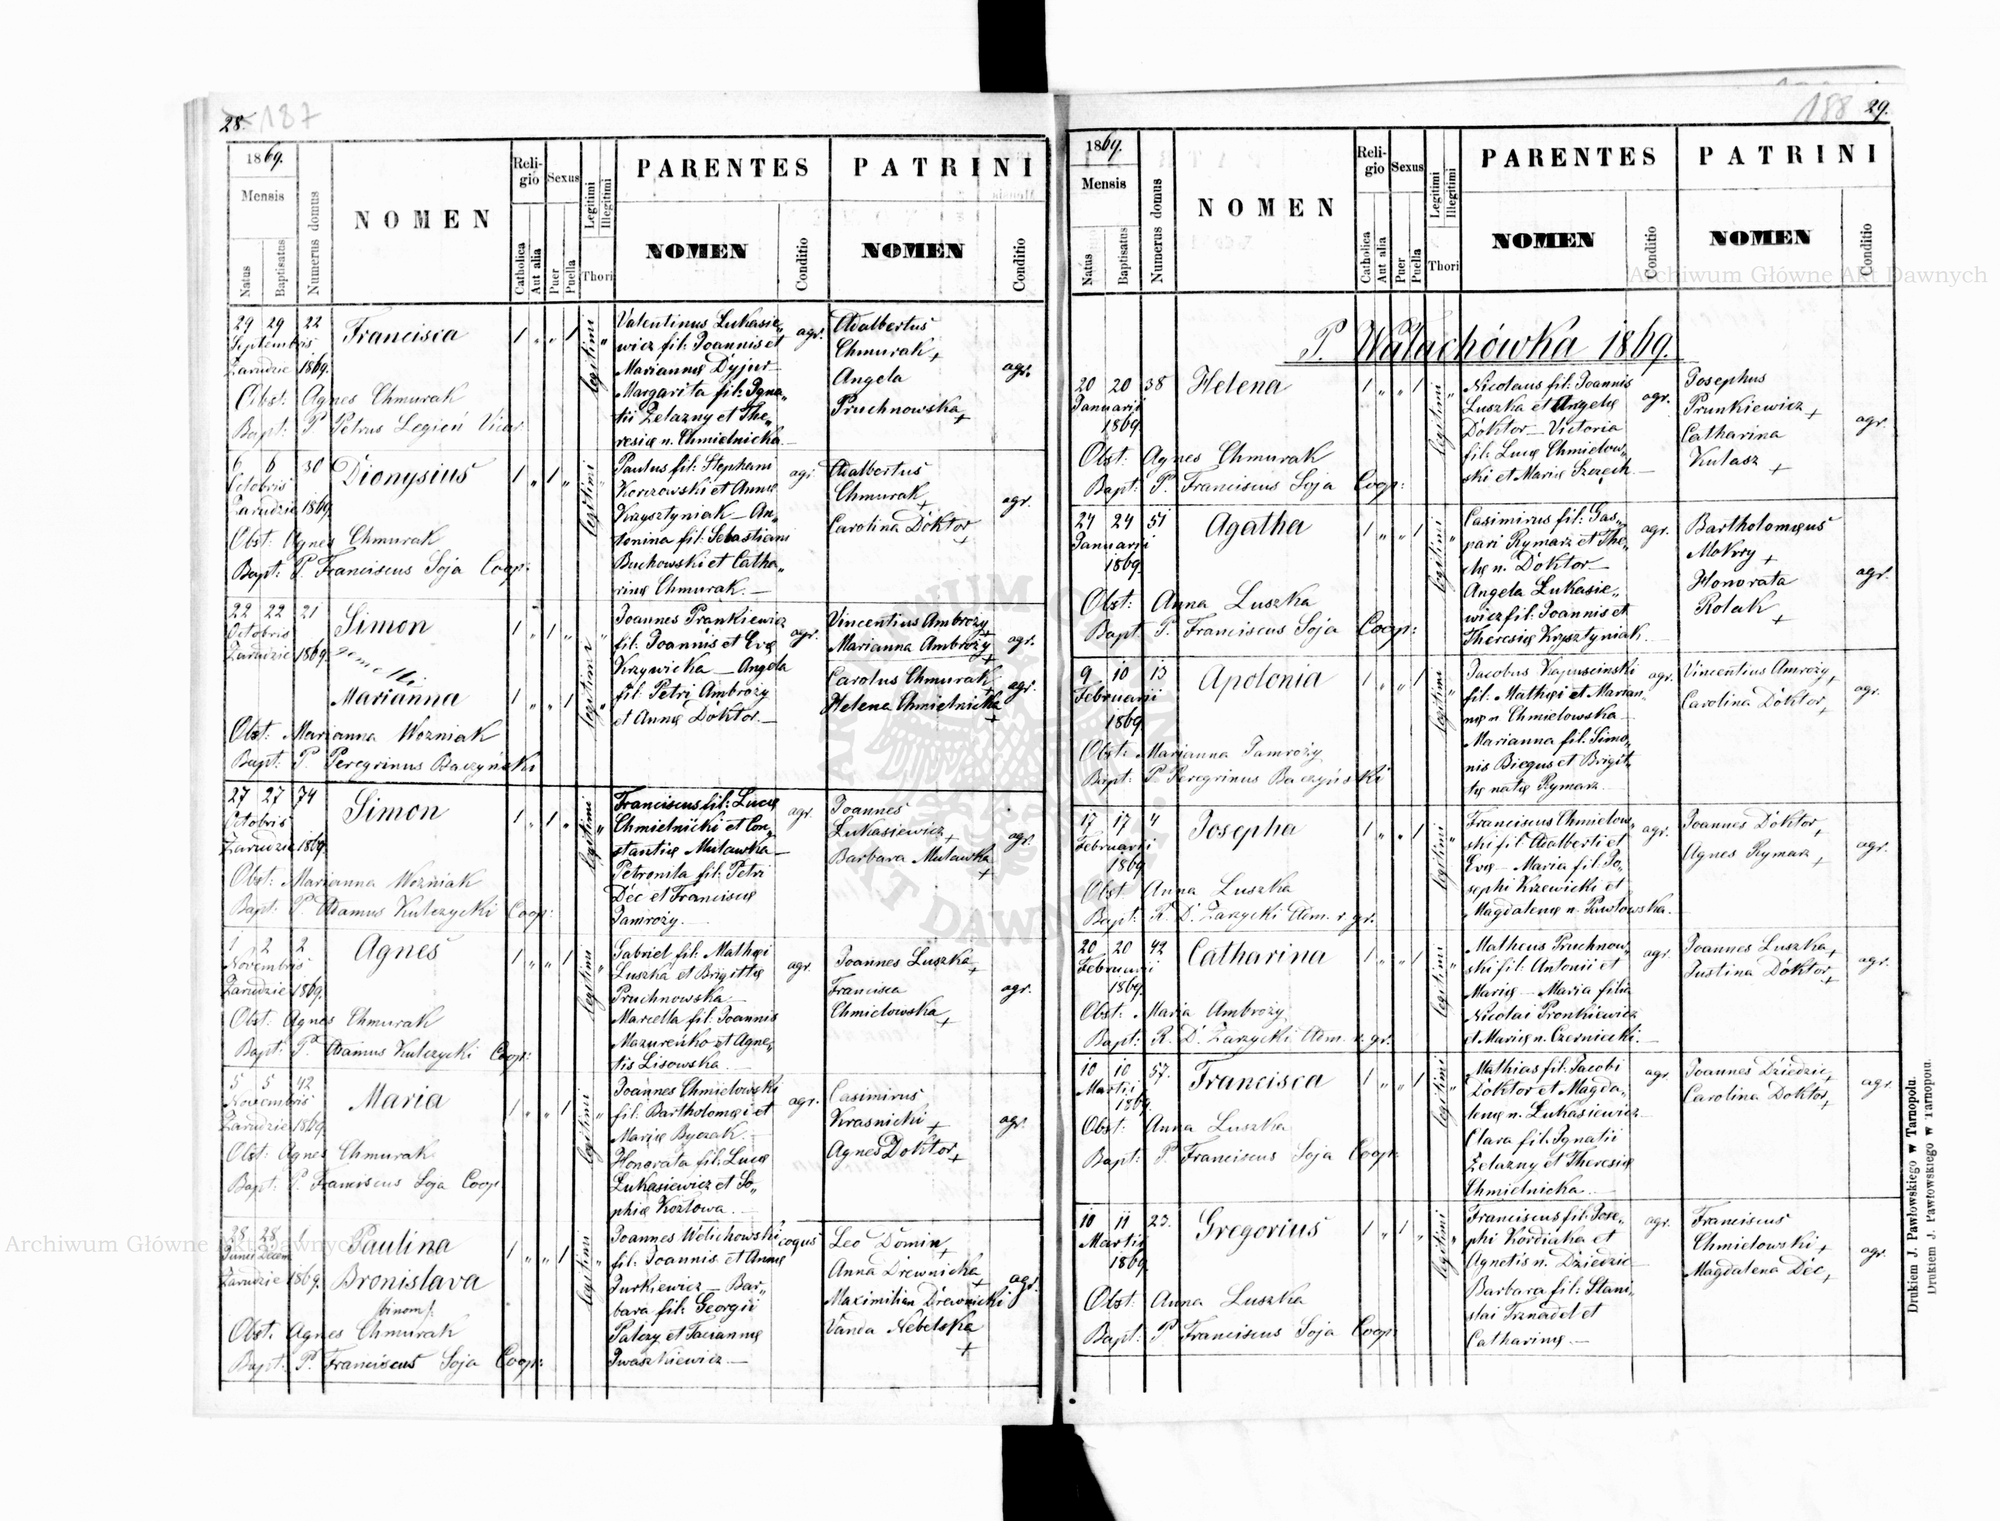 28. 187
1869.
Mensis
Natus
Baptisatus
Numerus domus
NOMEN
Religio
Catholica
Aut alia
Sexus
Puer
Puella
Legitimi
Illegitimi
Thori
PARENTES
NOMEN
Conditio
PATRINI
NOMEN
Conditio
29 29 22 Francisca 1 „ „ 1 legitimi „
Septembris
Zarudzie 1869.
Obst: Agnes Chmurak
Bapt: P Petrus Legień Vicar
Valentinus Łukasie„
wicz fil: Joannis et
Mariannę Dyjur
Margarita fil: Igna„
tii Żelazny et The„
resię n. Chmielnicka.—
agr.
Adalbertus
Chmurak +
Angela
Pruchnowska +
agr.
6 6 30 Dionysius 1 „ 1 „ legitimi „
Octobris
Zarudzie 1869.
Obst: Agnes Chmurak
Bapt: P. Franciscus Soja Coop:
Paulus fil: Stephani
Korczowski et Annę
Krzysztyniak — An„
tonina fil: Sebastiani
Buchowski et Catha„
rinę Chmurak.—
agr.
Adalbertus
Chmurak +
Carolina Doktor +
agr.
22 22 21 Simon 1 „ 1 „ legitimi „
Octobris
Zarudzie 1869.
gemelli
Marianna 1 „ „ 1 „
Obst: Marianna Wozniak
Bapt: P Peregrinus Baczyński
Joannes Prankiewicz
fil: Joannis et Evę
Krzywicka — Angela
fil: Petri Ambroży
et Annę Doktor.—
agr.
Vincentius Ambroży +
Marianna Ambroży +
agr.
Carolus Chmurak +
Helena Chmielnicka +
agr.
27 27 74 Simon 1 „ 1 „ legitimi „
Octobris
Zarudzie 1869.
Obst: Marianna Wozniak
Bapt: P. Adamus Kulczycki Coop:
Franciscus fil: Lucę
Chmielnicki et Con„
stantię Mulawka—
Petronila fil: Petri
Déc et Franciscę
Jamroży.—
agr.
Joannes
Łukasiewicz +
Barbara Mulawka +
agr.
1 2 2 Agnes 1 „ „ 1 legitimi „
Novembris
Zarudzie 1869.
Obst: Agnes Chmurak
Bapt: P. Adamus Kulczycki Coop:
Gabriel fil: Mathęi
Luszka et Brigittę
Pruchnowska —
Marcella fil: Joannis
Mazurenko et Agne„
tis Lisowska.
agr.
Joannes Luszka +
Francisca
Chmielowska +
agr.
5 5 42 Maria 1 „ „ 1 legitimi „
Novembris
Zarudzie 1869.
Obst: Agnes Chmurak
Bapt: P. Franciscus Soja Coop
Joannes Chmielowski
fil: Bartholomęi et
Marię Byczak.—
Honorata fil: Lucę
Łukasiewicz et So„
phię Kozłowa.—
agr.
Casimirus
Krasnicki +
Agnes Doktor +
agr.
28 28 1 Paulina 1 „ „ 1 legitimi „
Zarudzie 1869.
Bronislava
/binom/.
Obst. Agnes Chmurak
Bapt: P. Franciscus Soja Coop:
Joannes Wolichowski
fil: Joannis et Annę
Jurkiewicz — Bar„
bara fil: Georgii
Palczy et Taciannę
Iwaszkiewicz.—
coquus
Leo Domin +
Anna Drewnicka +
Maximilian Drewnicki +
Vanda Nebelska +
agr.
188 29.
1869.
Mensis
Natus
Baptisatus
Numerus domus
NOMEN
Religio
Catholica
Aut alia
Sexus
Puer
Puella
Legitimi
Illegitimi
Thori
PARENTES
NOMEN
Conditio
PATRINI
NOMEN
Conditio
P. Wałachówka 1869.
20 20 38 Helena 1 „ „ 1 legitimi „
Januarii
1869
Obst: Agnes Chmurak
Bapt: P. Franciscus Soja Coop:
Nicolaus fil: Joannis
Luszka et Angelę
Doktor — Victoria
fil: Lucę Chmielow„
ski et Marię Szczech.—
agr.
Josephus
Prunkiewicz +
Catharina
Kulasz +
agr.
24 24 51 Agatha 1 „ „ 1 legitimi „
Januarii
1869
Obst: Anna Luszka
Bapt. P. Franciscus Soja Coop:
Casimirus fil: Gas„
pari Rymarz et The„
clę n. Doktor —
Angela Łukasie„
wicz fil: Joannis et
Theresię Krysztyniak.
agr.
Bartholomęus
Mokry +
Honorata
Rolak +
agr.
9 10 13 Apolonia 1 „ „ 1 legitimi „
Februarii
1869
Obst: Marianna Jamroży
Bapt: P Peregrinus Baczyński
Jacobus Kapuscinski
fil: Mathęi et Marian„
nę n Chmielowska —
Marianna fil: Simo„
nis Biegus et Brigit„
tę natę Rymarz.—
agr.
Vincentius Amroży +
Carolina Doktor +
agr.
17 17 4 Josepha 1 „ „ 1 legitimi „
Februarii
1869
Obst Anna Luszka
Bapt: R. D. Zarzycki Adm. r. gr.
Franciscus Chmielow„
ski fil: Adalberti et
Evę — Maria fil: Jo„
sephi Krzewicki et
Magdalenę n. Pawłowska.
agr.
Joannes Doktor +
Agnes Rymarz +
agr.
20 20 42 Catharina 1 „ „ 1 legitimi „
Februarii
1869.
Obst: Maria Ambroży
Bapt: R. D. Zarzycki Adm. r. gr.
Matheus Pruchnow„
ski fil: Antonii et
Marię — Maria filia
Nicolai Pronkiewicz
et Marię n. Czernicki.—
agr.
Joannes Luszka +
Justina Doktor +
agr.
10 10 57. Francisca 1 „ „ 1 legitimi „
Martii
1869.
Obst: Anna Luszka
Bapt: P. Franciscus Soja Coop:
Mathias fil: Jacobi
Doktor et Magda„
lenę n. Łukasiewicz—
Clara fil: Ignatii
Żelazny et Theresię
Chmielnicka.—
agr.
Joannes Dziedzic +
Carolina Doktor +
agr.
10 11 23. Gregorius 1 „ 1 „ legitimi „
Martii
1869
Obst: Anna Luszka
Bapt: P Franciscus Soja Coop
Franciscus fil: Jose„
phi Kordicha et
Agnetis n. Dziedzic—
Barbara fil: Stani„
slai Trznadel et
Catharinę.—
agr.
Franciscus
Chmielowski +
Magdalena Déc +
agr.
Drukiem J. Pawłowskiego w Tarnopolu.
Drukiem J. Pawłowskiego w Tarnopolu.
Archiwum Główne Akt Dawnych
Archiwum Główne Akt Dawnych
ARCHIWUM GŁÓWNE AKT DAWNYCH